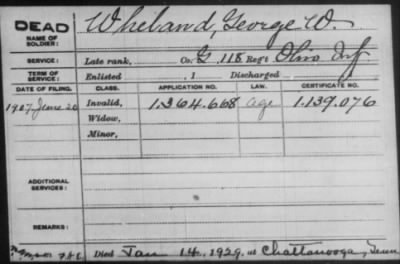 DEAD
NAME OF SOLDIER: Wheland, George W.
SERVICE: Late rank, Co. G, 118 Reg't Ohio Inf.
TERM OF SERVICE: Enlisted , 1 Discharged
DATE OF FILING. CLASS. APPLICATION NO. LAW. CERTIFICATE NO.
1907 June 20 Invalid, 1.364.668 age 1.139.076
Widow,
Minor,
ADDITIONAL SERVICES:
REMARKS:
Died Jan 14, 1929, at Chattanooga, Tenn